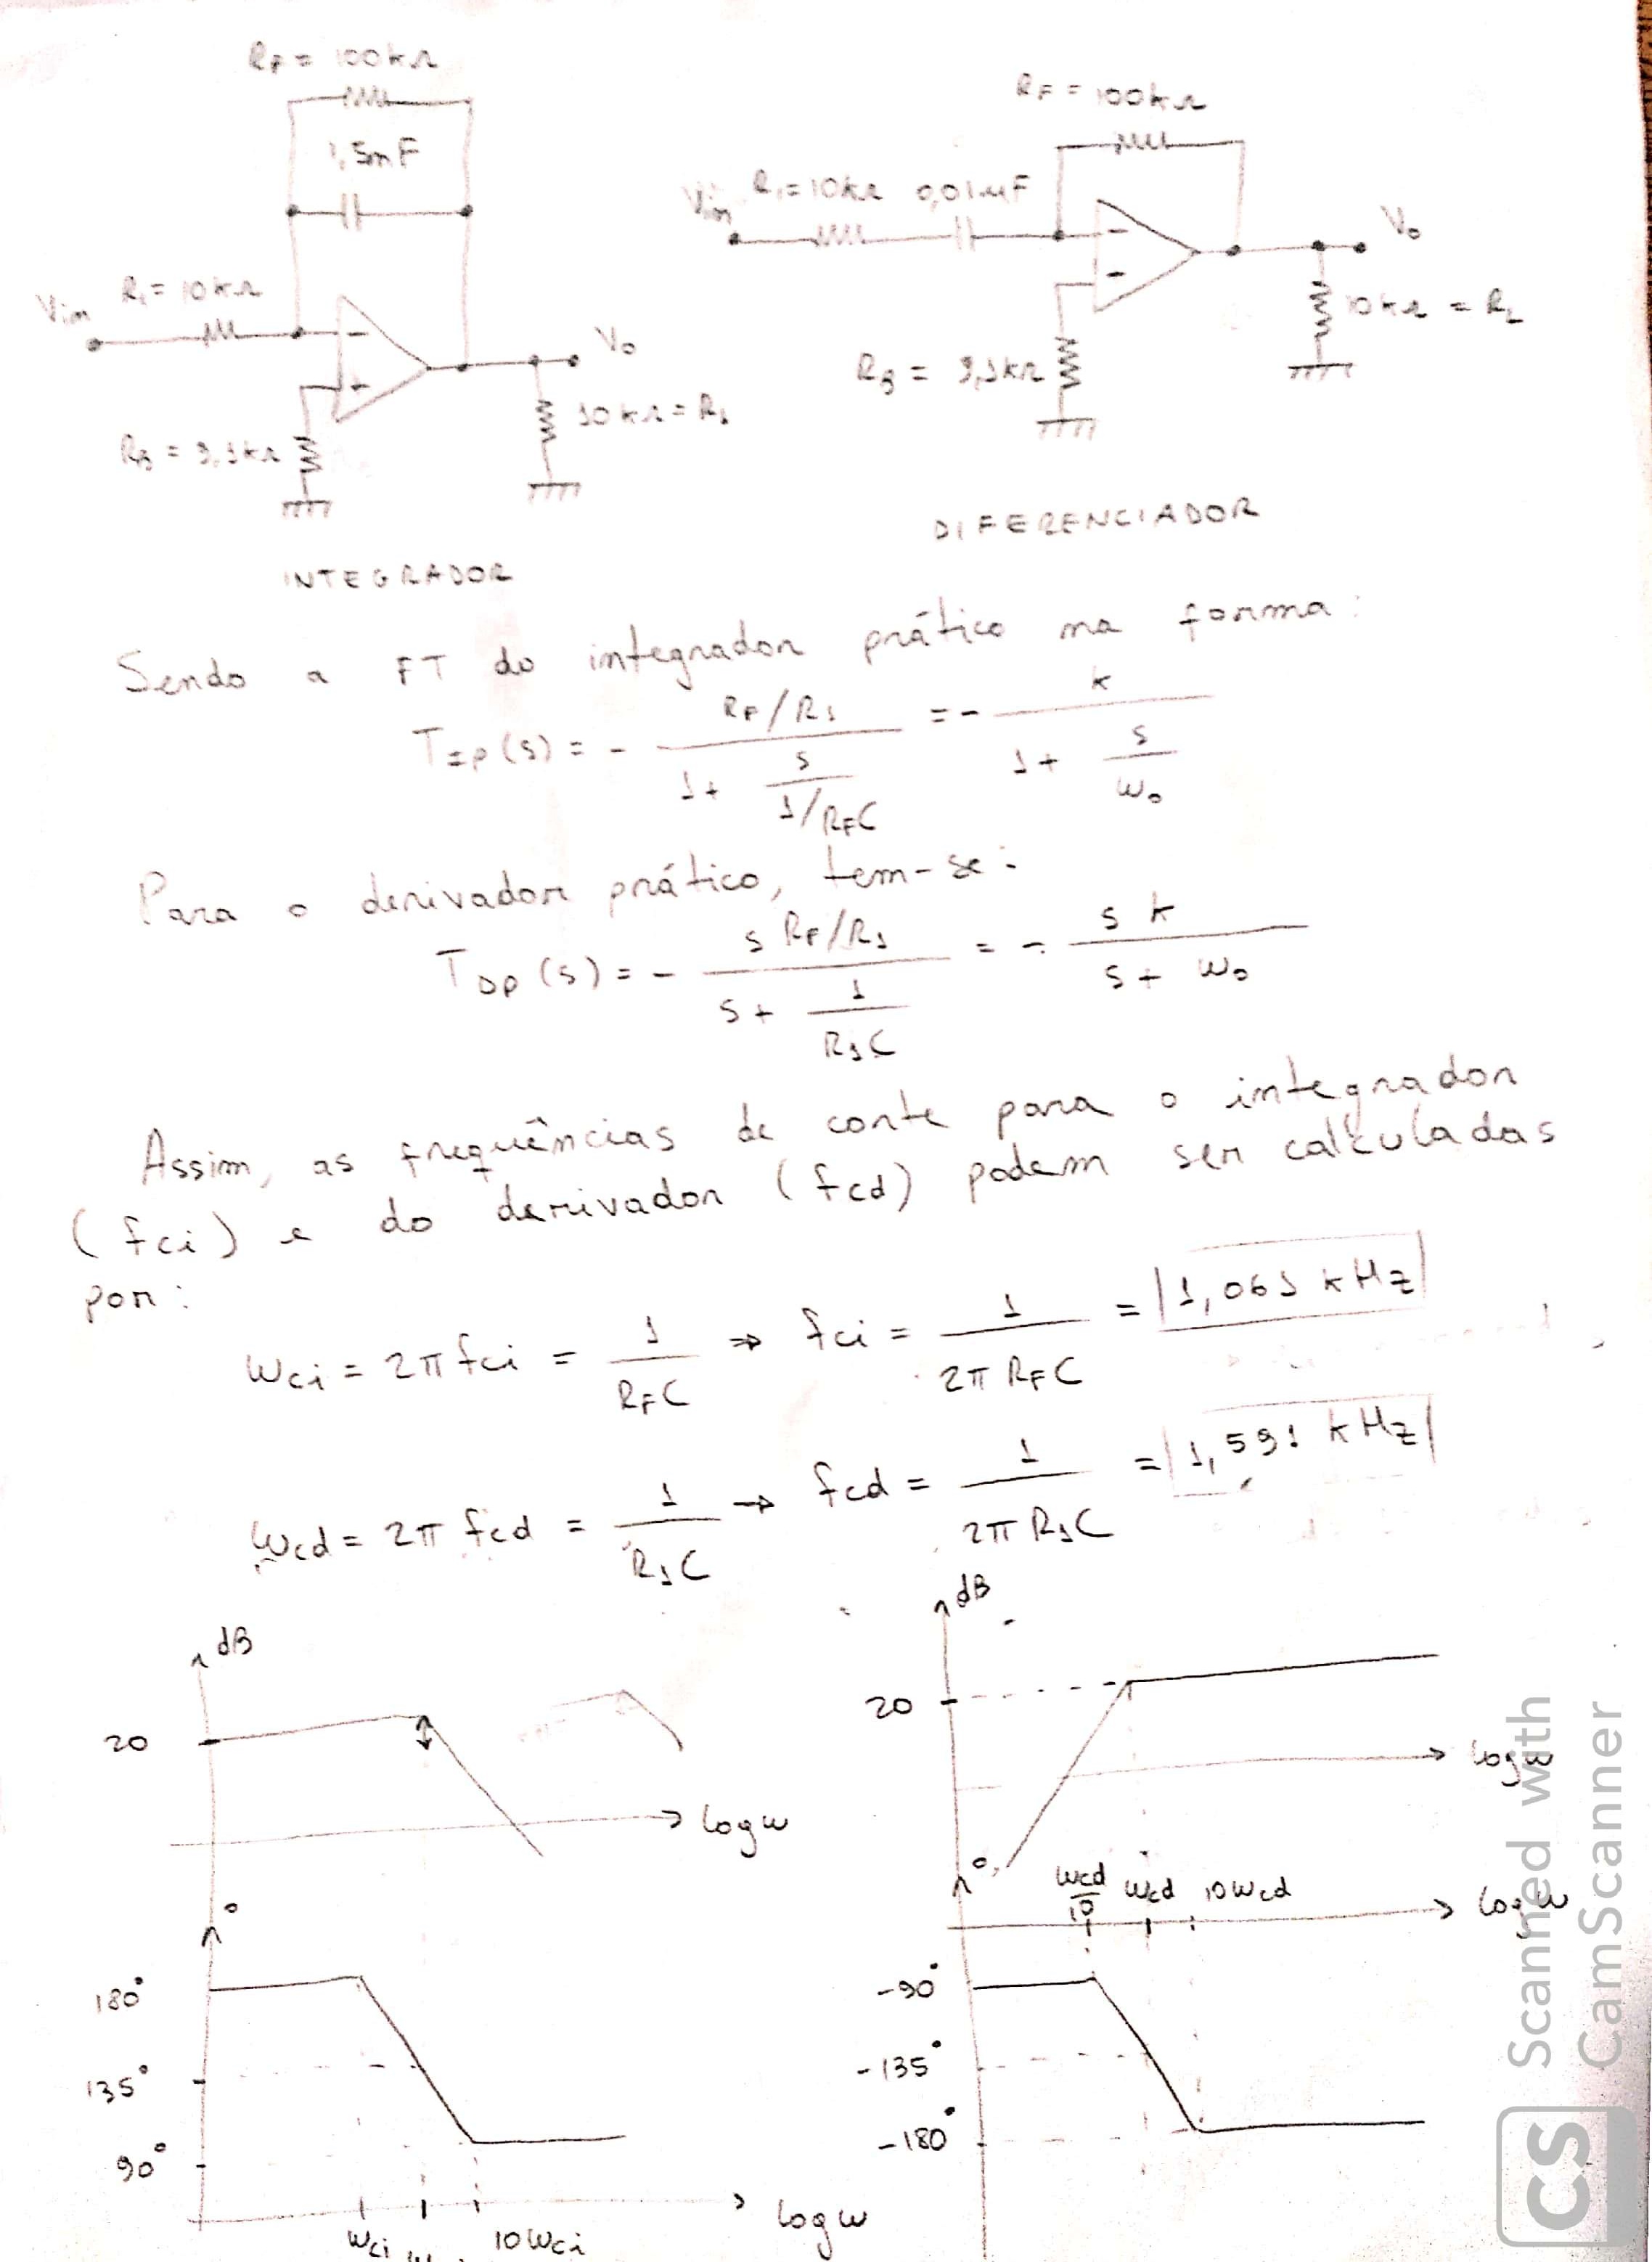 RF = 100kΩ
1,5nF
Vin R1 = 10kΩ
Vo
RB = 9,1kΩ
10kΩ = RL
INTEGRADOR
RF = 100kΩ
Vin R1 = 10kΩ 0,01μF
Vo
10kΩ = RL
RB = 9,1kΩ
DIFERENCIADOR
Sendo a FT do integrador prático na forma:
TIP(s) = - (RF/R1) / (1 + s/(1/RFC)) = - k / (1 + s/ω0)
Para o derivador prático, tem-se:
TDP(s) = - (s RF/R1) / (s + 1/(R1C)) = - s k / (s + ω0)
Assim, as frequências de corte para o integrador
(fci) e do derivador (fcd) podem ser calculadas
por:
ωci = 2π fci = 1/(RFC) ⇒ fci = 1/(2π RFC) = 1,061 kHz
ωcd = 2π fcd = 1/(R1C) → fcd = 1/(2π R1C) = 1,591 kHz
dB
20
log ω
°
180°
135°
90°
ωci
10ωci
log ω
dB
20
log ω
°
ωcd/10 ωcd 10ωcd
log ω
-90°
-135°
-180°
CS Scanned with
CamScanner